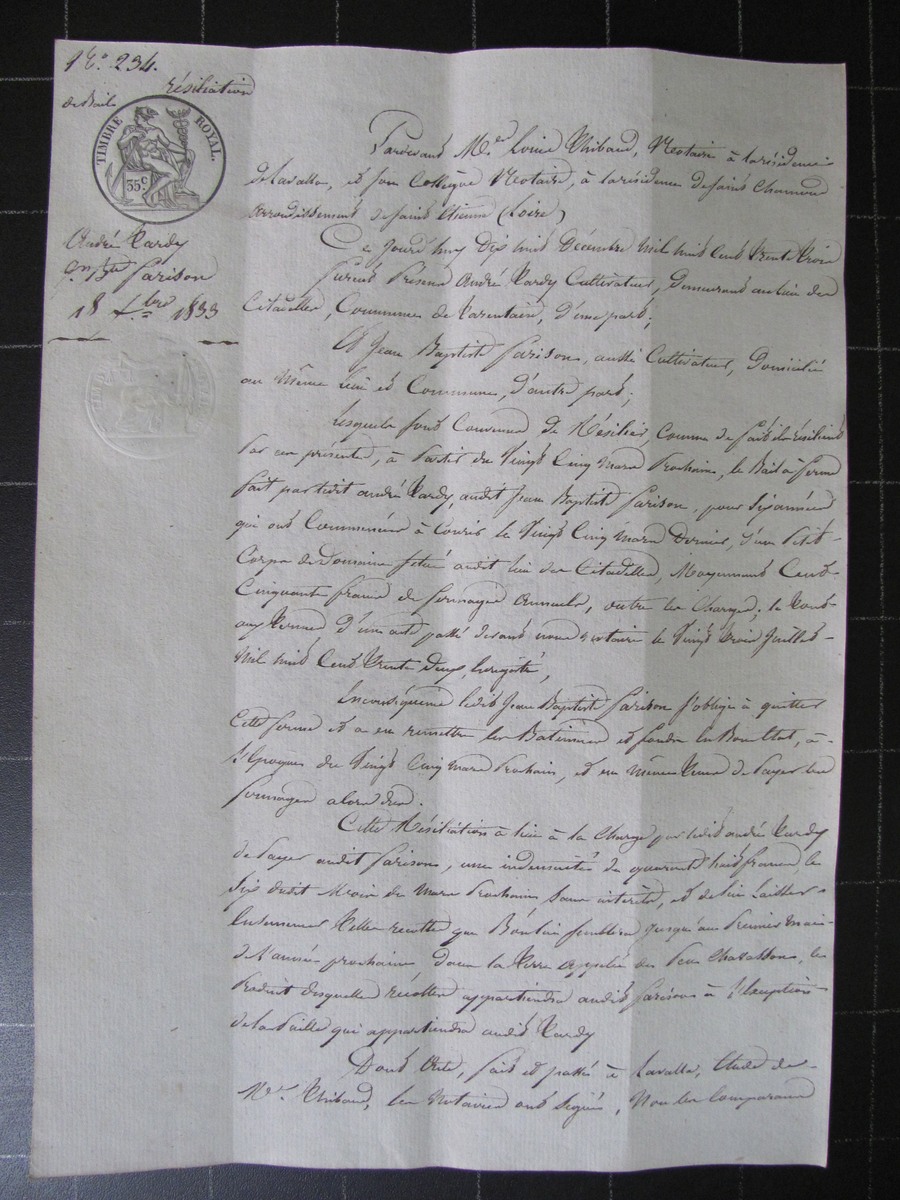 N.º 234.
résiliation
de Bail
TIMBRE ROYAL.
35 c.
André Tardy
Jn Bte Parison
18 Xbre 1833
Pardevant Me. Louis Thibaud, Notaire à la résidence
de Lavalla, et son Collègue Notaire, à la résidence de Saint Chamond
Arrondissement de Saint Etienne (Loire)
Ce jourd'huy Dix huit Décembre Mil huit Cent trente trois
furent Présens André Tardy Cultivateur, Demeurant au lieu des
Citadelles, Commune de Tarentaise, d'une part,
Et Jean Baptiste Parison, aussi Cultivateur, Domicilié
au Même lieu et Commune, d'autre part;
Lesquels sont Convenus de Résilier, Comme de fait ils résilient
Par ces présentes, à Partir du Vingt Cinq Mars Prochain, le Bail à ferme
fait par ledit André Tardy, audit Jean Baptiste Parison, pour Six années
qui ont Commencées à Courir le Vingt Cinq Mars Dernier, d'un Petit
Corps de Domaine situé audit lieu des Citadelles, Moyennant Cent
Cinquante francs de fermages Annuels, outre les Charges; le tout
aux termes d'un acte passé devant nous notaire le Vingt trois Juillet
Mil huit Cent trente Deux, Enregistré,
En conséquence ledit Jean Baptiste Parison s'oblige à quitter
Cette ferme et à en remettre les Bâtimens et fonds en Bon Etat, à
l'époque du Vingt Cinq Mars Prochain, et en même tems de Payer les
fermages alors dus.
Cette Résiliation a lieu à la Charge par ledit André Tardy
de Payer audit Parison, une indemnité de quarante huit francs, le
Six dudit Mois de Mars Prochain Sans interêt, et de lui laisser
Ensemencer telles recoltes que Bon lui semblera jusqu'au Premier Mai
de l'année prochaine dans la Terre appelée des Chavassons, le
Produit desquelles récoltes appartiendra audit Parison à l'Exception
de la Paille qui appartiendra audit Tardy
Dont Acte, fait et passé à Lavalla, Etude de
Me. Thibaud, les Notaires ont Signé, Non les Comparans